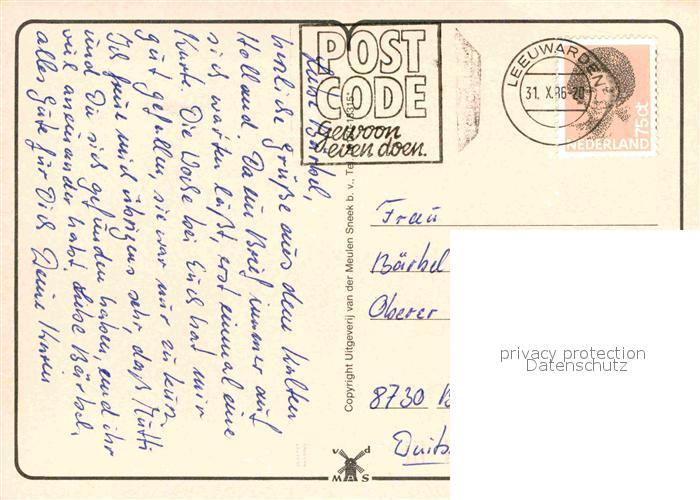 Liebe Bärbel,
herzliche Grüße aus dem kalten
Holland. Da ein Brief immer auf
sich warten läßt, erst einmal eine
Karte. Die Woche bei Euch hat mir
gut gefallen, sie war nur zu kurz.
Ich freue mich übrigens sehr, daß Mutti
und Du sich gefunden haben, und ihr
viel aneinander habt. Liebe Bärbel,
alles Gute für Dich Deine Karen
POST
CODE
Gewoon
even doen.
LEEUWARDEN
31. X.86-20
NEDERLAND
75 ct
Copyright Uitgeverij van der Meulen Sneek b. v.,
v d
MAS
Frau
Bärbel
Oberer
8730 B
privacy protection
Datenschutz